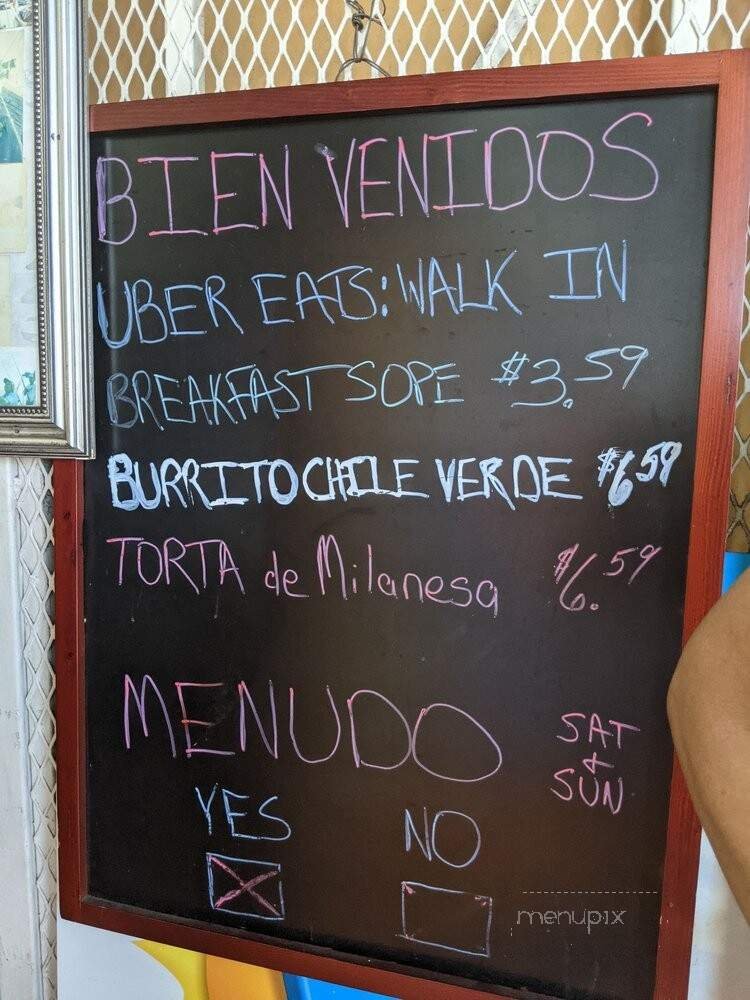 BIEN VENIDOS
UBER EATS: WALK IN
BREAKFAST SOPE $3.59
BURRITO CHILE VERDE $6.59
TORTA de Milanesa $6.59
MENUDO SAT + SUN
YES NO
X
menupix